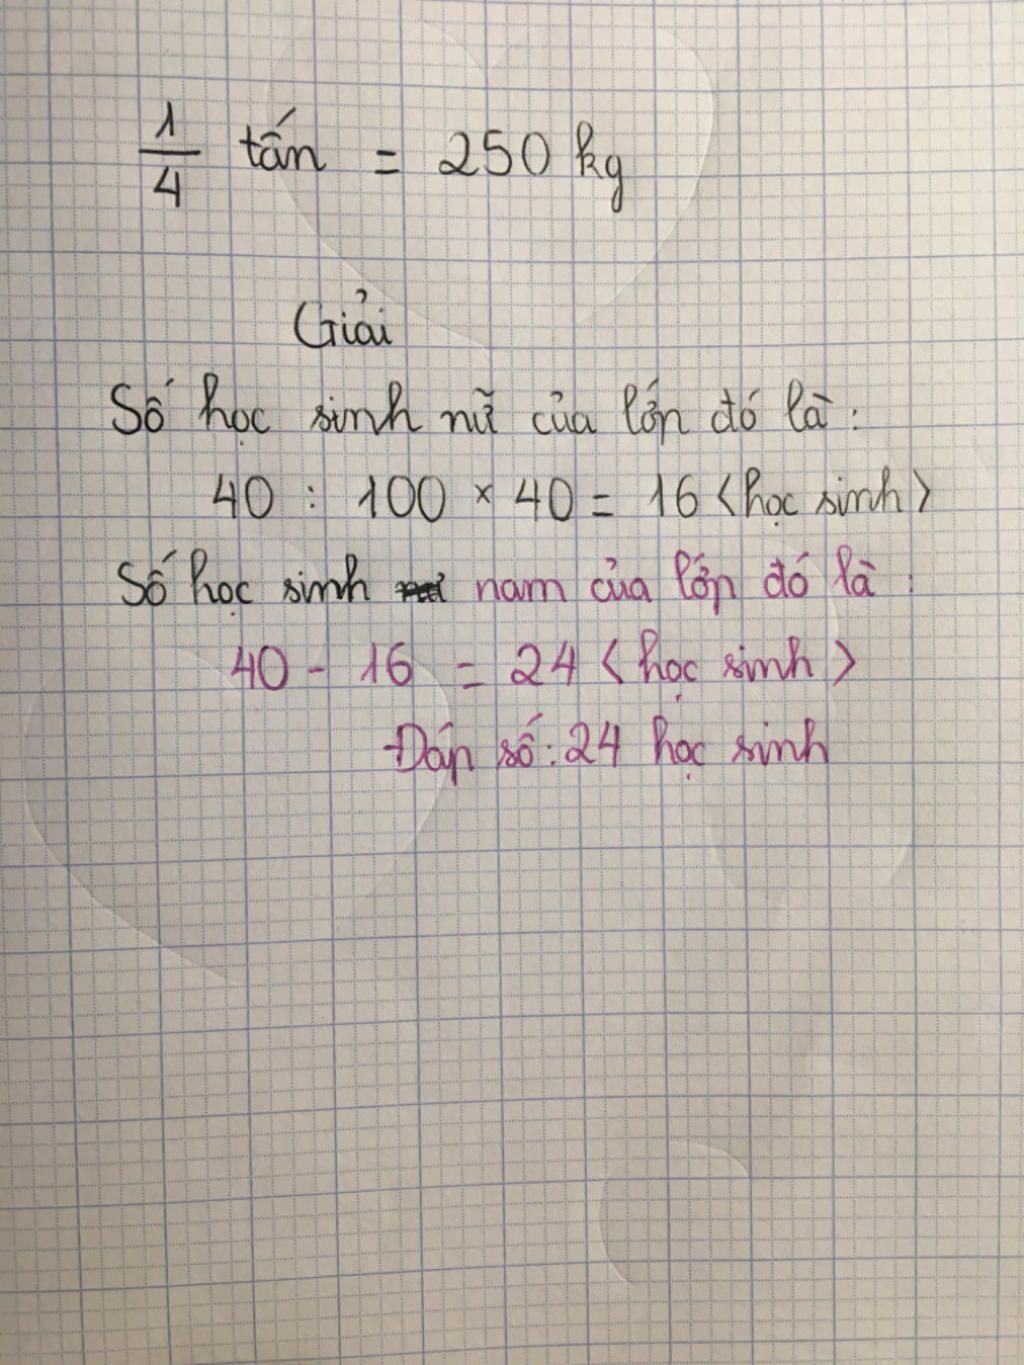 1/4 tấn = 250 kg
Giải
Số học sinh nữ của lớp đó là:
40 : 100 × 40 = 16 <học sinh>
Số học sinh nam của lớp đó là:
40 - 16 = 24 <học sinh>
Đáp số: 24 học sinh